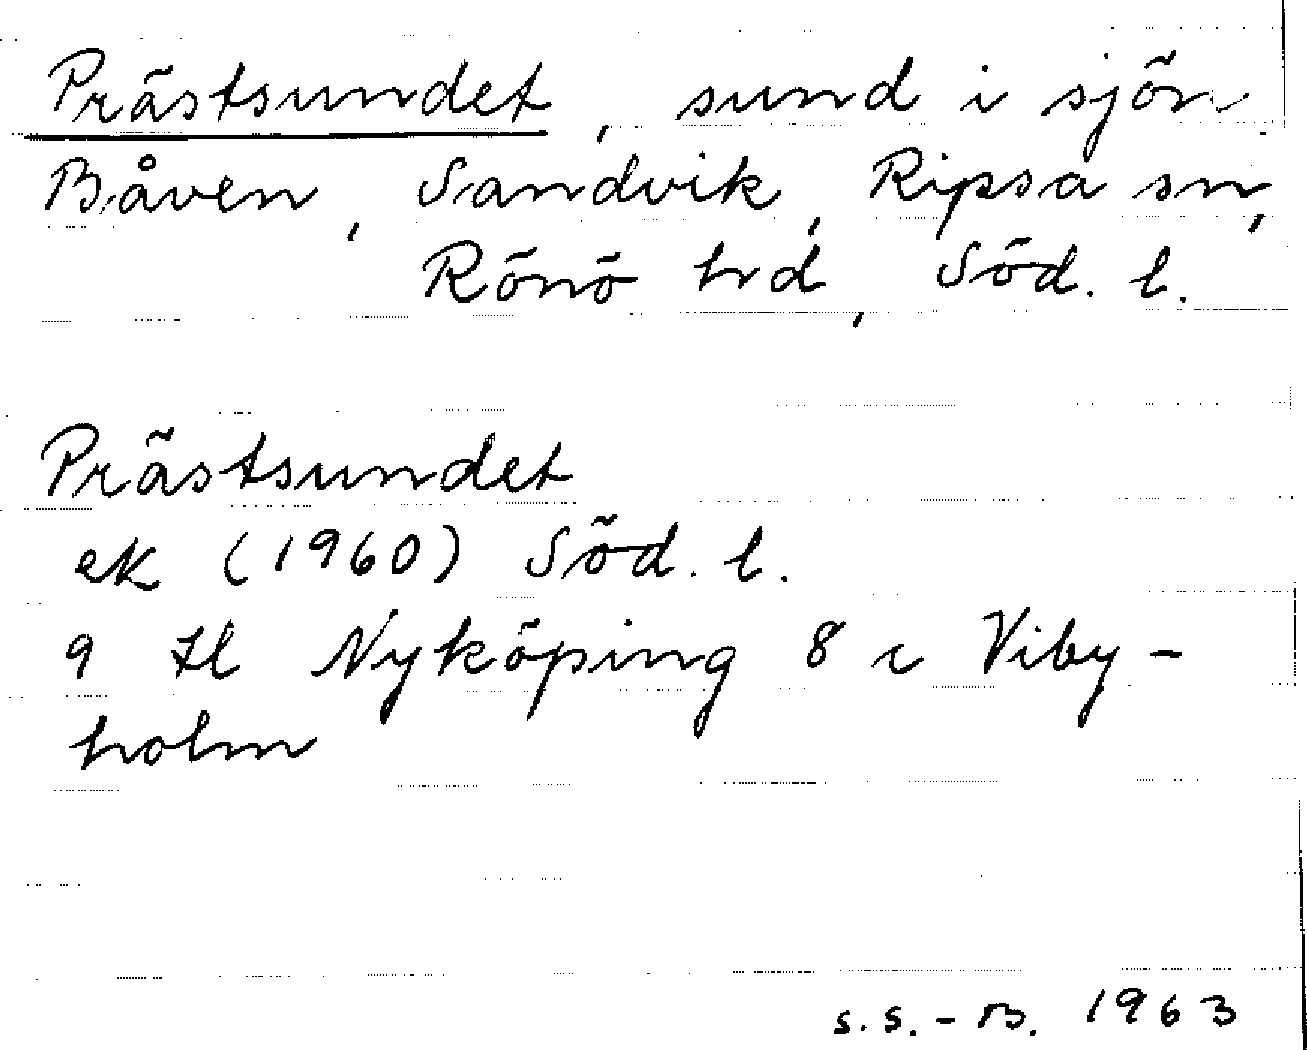 Prästsundet, sund i sjön
Båven, Sandvik, Ripsa sn,
Rönö hd, Söd. l.
Prästsundet
ek (1960) Söd. l.
9 Hl Nyköping 8 c Viby-
holm
S.S.-B. 1963